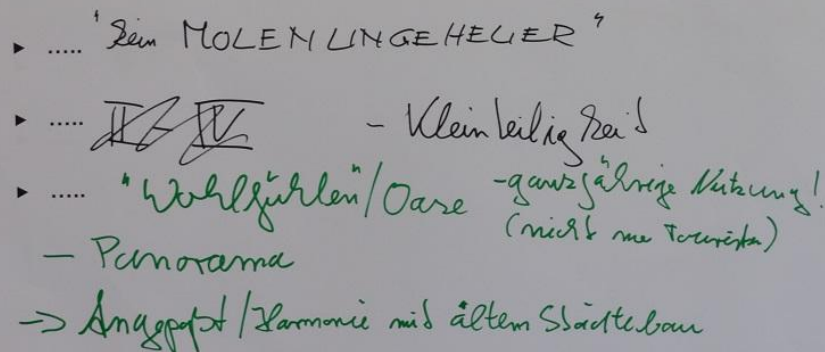 ► ..... "Kein MOLENUNGEHEUER"
► ..... II-IV - Kleinteiligkeit
► ..... "Wohlfühlen"/Oase - ganzjährige Nutzung!
(nicht nur Touristen)
- Panorama
-> Angepaßt/Harmonie mit altem Städtebau